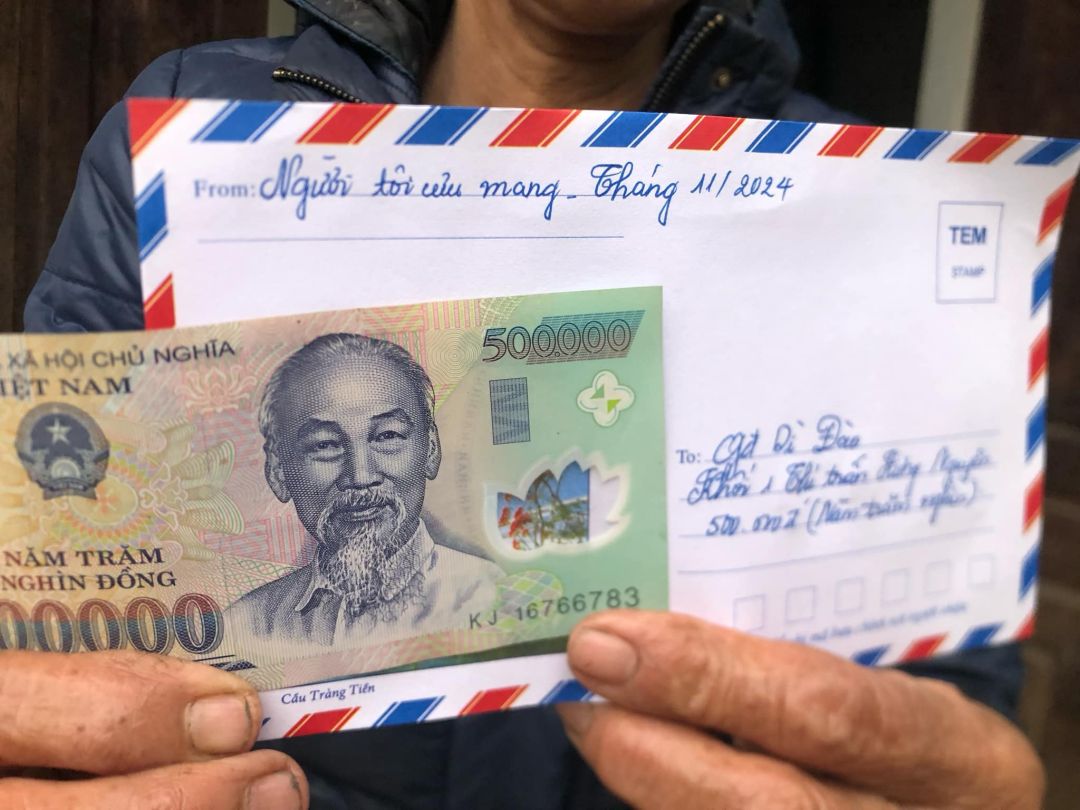 From: Người tôi cưu mang - Tháng 11/2024
TEM
STAMP
XÃ HỘI CHỦ NGHĨA
IỆT NAM
500.000
To: gđ Dì Đào
Khối 1 Thị trấn Hưng Nguyên
500.000đ (Năm trăm nghìn)
NĂM TRĂM
NGHÌN ĐỒNG
00000
KJ 16766783
Cầu Tràng Tiền